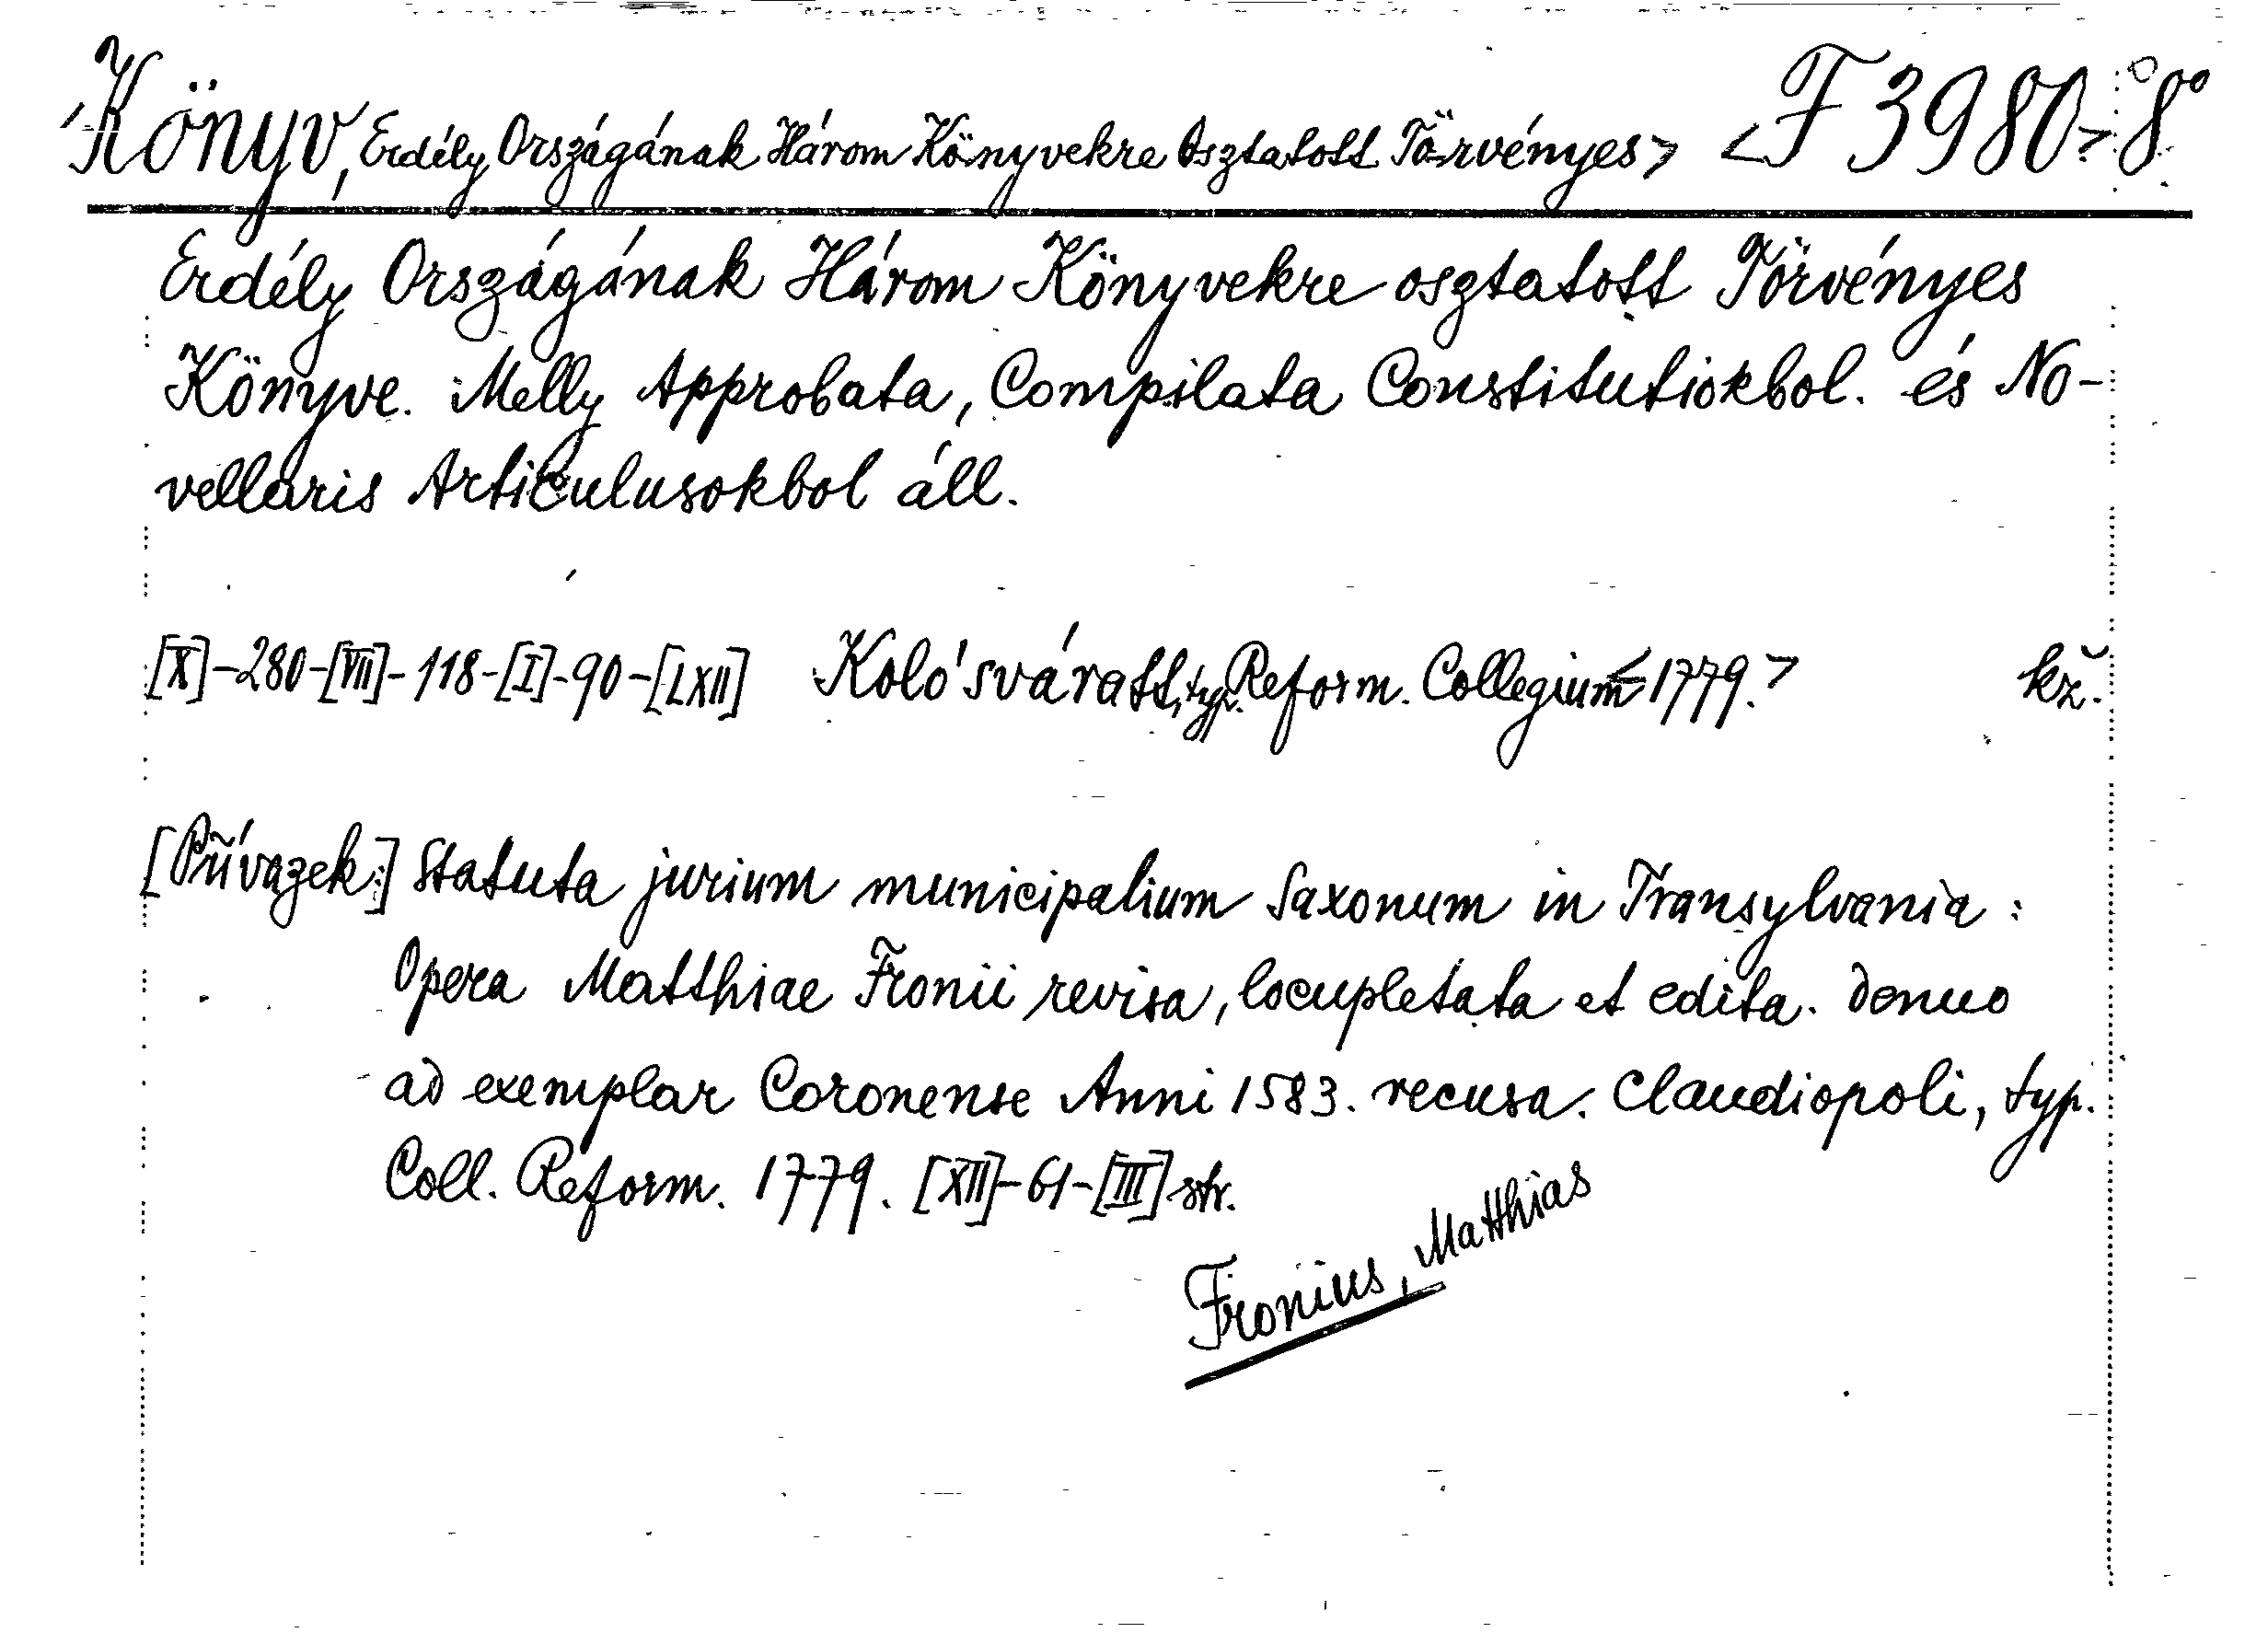 Könyv, Erdély Országának Három Könyvekre Osztatott Törvényes> <F 3980.> 8°
Erdély Országának Három Könyvekre osztatott Törvényes
Könyve. Melly Approbata, Compilata Constitutiokbol. és No-
vellaris Articulusokbol áll.
[X]-280-[VII]-118-[I]-90-[LXII] Koló'sváratt, typ. Reform. Collegium <1779.> kž.
[Přívazek:] Statuta jurium municipalium Saxonum in Transylvania:
Opera Matthiae Fronii revisa, locupletata et edita. Denuo
ad exemplar Coronense Anni 1583. recusa. Claudiopoli, typ.
Coll. Reform. 1779. [XII]-61-[III] str.
Fronius, Matthias